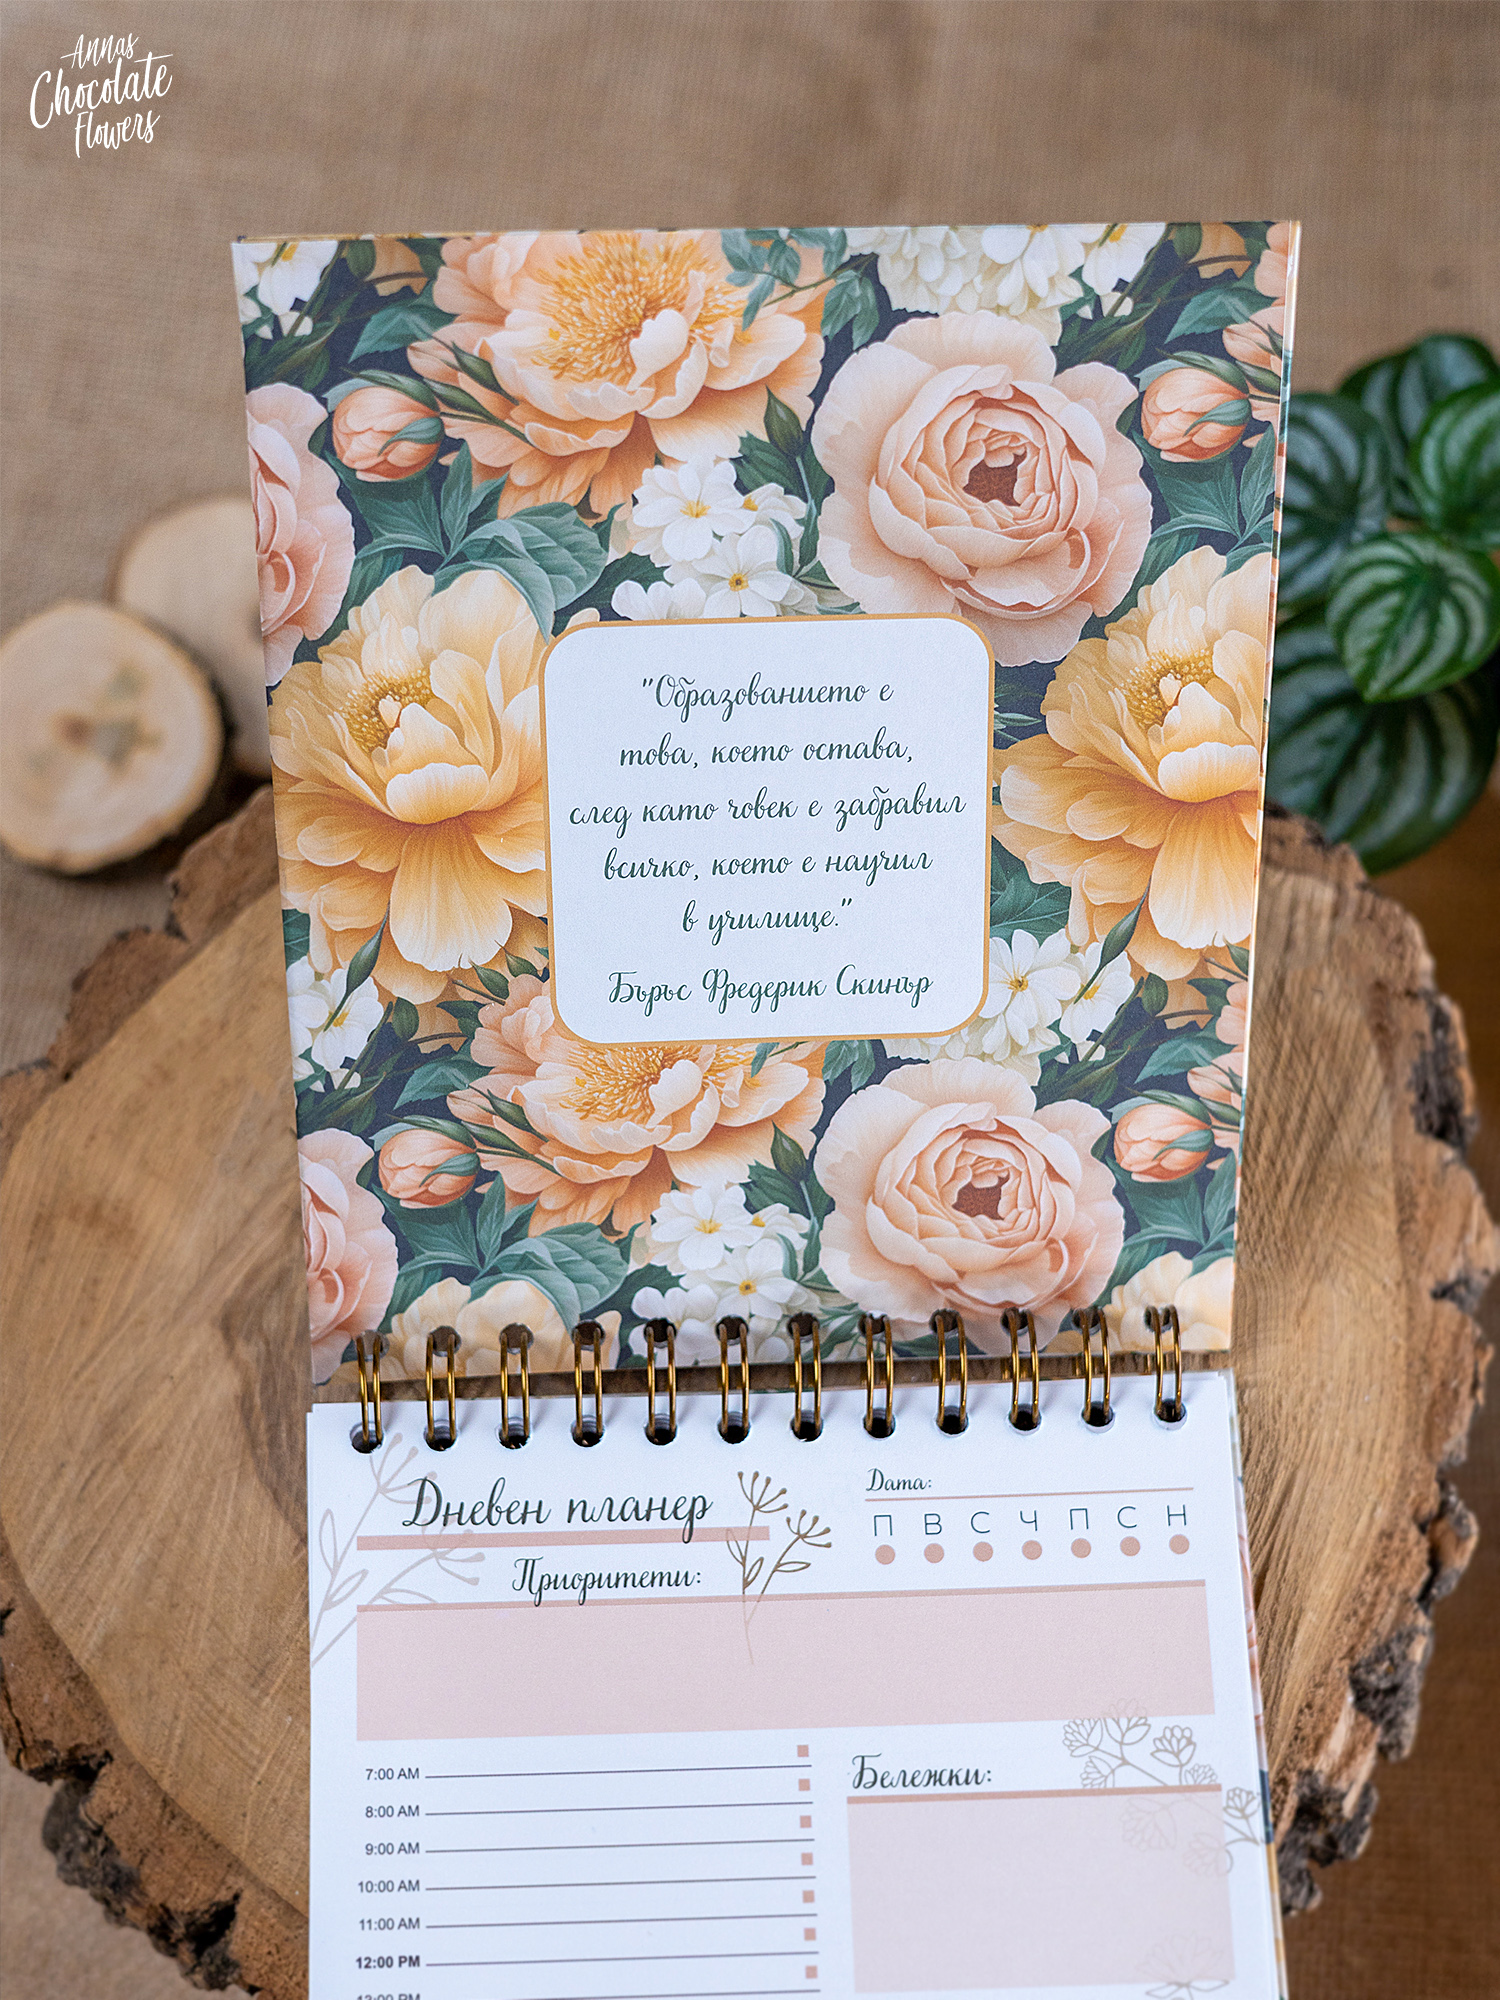 Annas
Chocolate
Flowers
"Образованието е
това, което остава,
след като човек е забравил
всичко, което е научил
в училище."
Бъръс Фредерик Скинър
Дневен планер
Дата:
П В С Ч П С Н
Приоритети:
7:00 AM
8:00 AM
9:00 AM
10:00 AM
11:00 AM
12:00 PM
13:00 PM
Бележки: